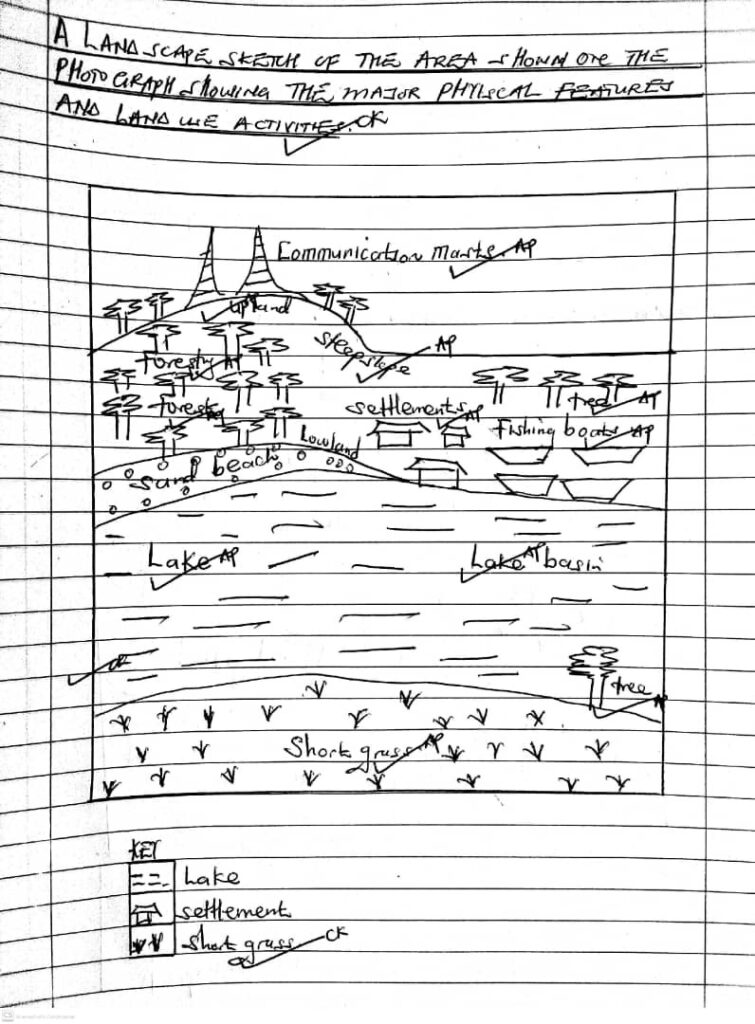 A LANDSCAPE SKETCH OF THE AREA SHOWN ON THE
PHOTOGRAPH SHOWING THE MAJOR PHYSICAL FEATURES
AND LAND USE ACTIVITIES. CK
Communication Masts. AP
upland
steepslope AP
forestry AP
tree AP
forestry AP
settlements AP
Fishing boats AP
Lowland
sand beach
Lake AP
Lake basin AP
CK
tree AP
Short grass AP
KEY
Lake
settlement
Short grass CK